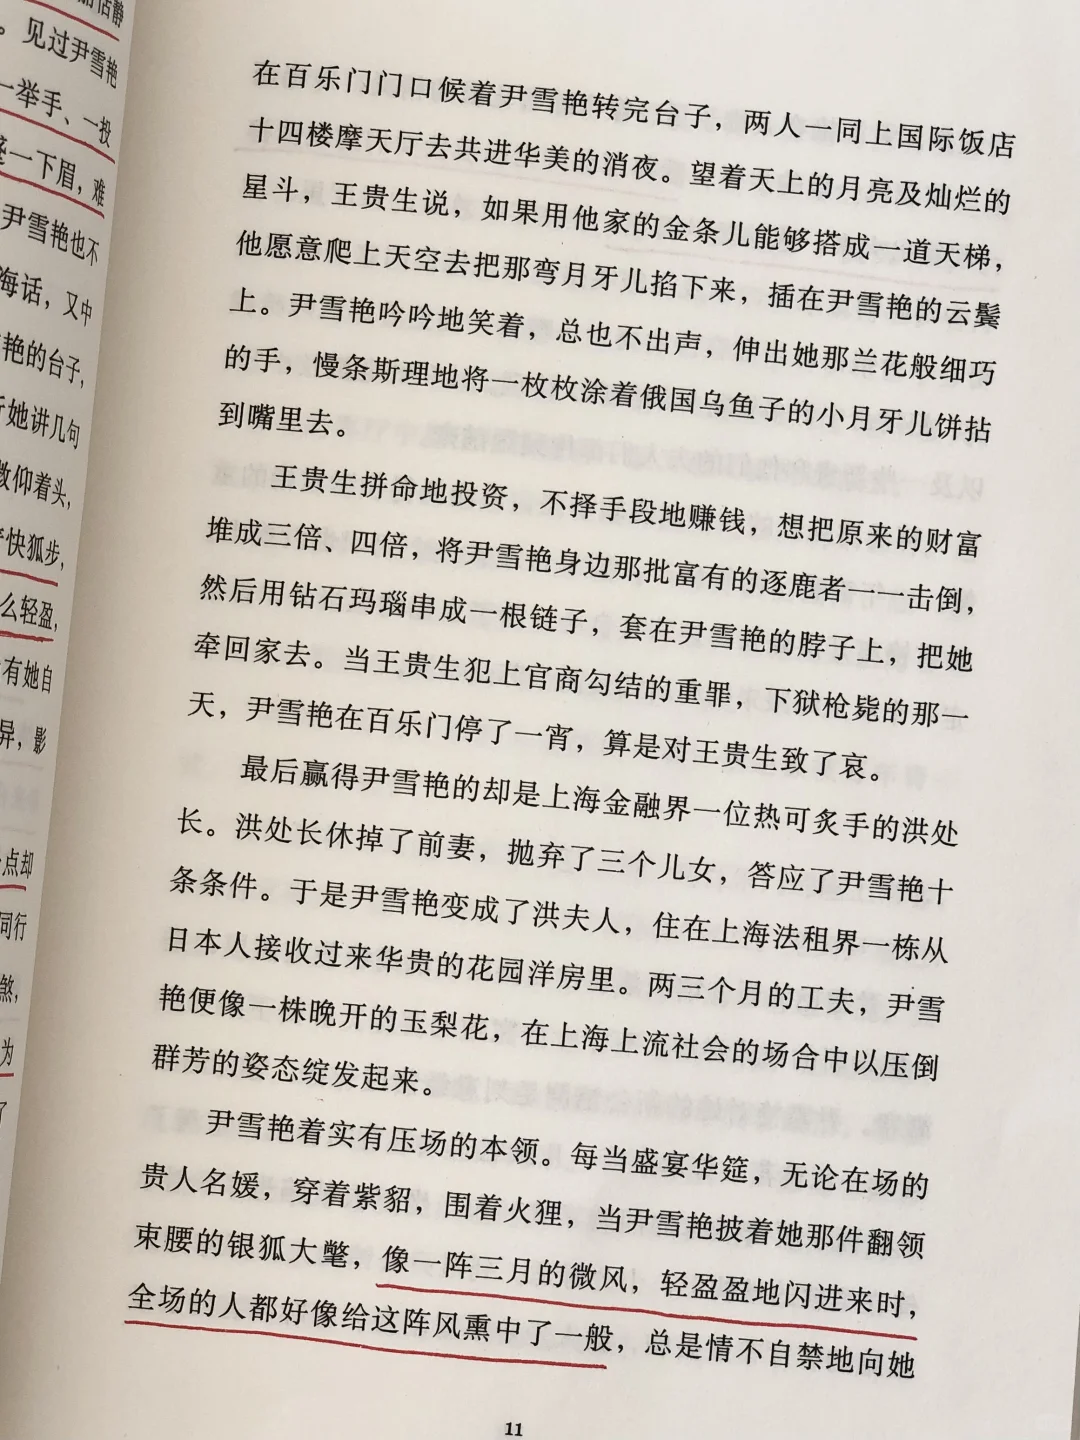 怡静
。见过尹雪艳
一举手、一投
蹙一下眉，难
尹雪艳也不
海话，又中
艳的台子，
听她讲几句
微仰着头，
快狐步，
么轻盈，
有她自
异，影
点却
同行
煞，
为
了
在百乐门门口候着尹雪艳转完台子，两人一同上国际饭店
十四楼摩天厅去共进华美的消夜。望着天上的月亮及灿烂的
星斗，王贵生说，如果用他家的金条儿能够搭成一道天梯，
他愿意爬上天空去把那弯月牙儿掐下来，插在尹雪艳的云鬓
上。尹雪艳吟吟地笑着，总也不出声，伸出她那兰花般细巧
的手，慢条斯理地将一枚枚涂着俄国乌鱼子的小月牙儿饼拈
到嘴里去。
王贵生拼命地投资，不择手段地赚钱，想把原来的财富
堆成三倍、四倍，将尹雪艳身边那批富有的逐鹿者一一击倒，
然后用钻石玛瑙串成一根链子，套在尹雪艳的脖子上，把她
牵回家去。当王贵生犯上官商勾结的重罪，下狱枪毙的那一
天，尹雪艳在百乐门停了一宵，算是对王贵生致了哀。
最后赢得尹雪艳的却是上海金融界一位热可炙手的洪处
长。洪处长休掉了前妻，抛弃了三个儿女，答应了尹雪艳十
条条件。于是尹雪艳变成了洪夫人，住在上海法租界一栋从
日本人接收过来华贵的花园洋房里。两三个月的工夫，尹雪
艳便像一株晚开的玉梨花，在上海上流社会的场合中以压倒
群芳的姿态绽发起来。
尹雪艳着实有压场的本领。每当盛宴华筵，无论在场的
贵人名媛，穿着紫貂，围着火狸，当尹雪艳披着她那件翻领
束腰的银狐大氅，像一阵三月的微风，轻盈盈地闪进来时，
全场的人都好像给这阵风熏中了一般，总是情不自禁地向她
11